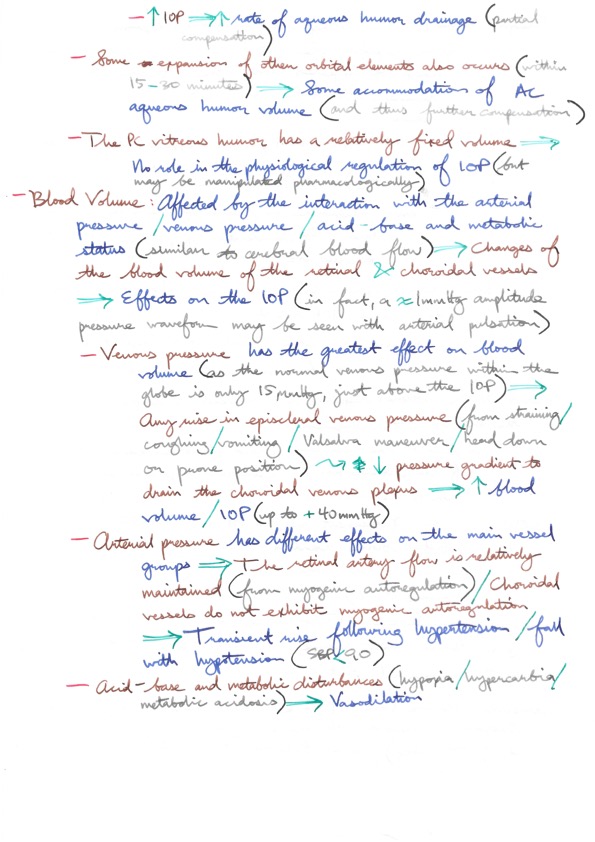 — ↑ IOP → ↑ rate of aqueous humor drainage (partial
compensation)
— Some expansion of other orbital elements also occurs (within
15-30 minutes) → Some accommodation of AC
aqueous humor volume (and thus further compensation)
— The PC vitreous humor has a relatively fixed volume →
No role in the physiological regulation of IOP (but
may be manipulated pharmacologically)
— Blood Volume: Affected by the interaction with the arterial
pressure / venous pressure / acid-base and metabolic
status (similar to cerebral blood flow) → Changes of
the blood volume of the retinal & choroidal vessels
→ Effects on the IOP (in fact, a ≈1mmHg amplitude
pressure waveform may be seen with arterial pulsation)
— Venous pressure has the greatest effect on blood
volume (as the normal venous pressure within the
globe is only 15mmHg, just above the IOP) →
Any rise in episcleral venous pressure (from straining/
coughing/vomiting/Valsalva maneuver/head down
or prone position) ⤳ ↓ pressure gradient to
drain the choroidal venous plexus → ↑ blood
volume/IOP (up to +40mmHg)
— Arterial pressure has different effects on the main vessel
groups → The retinal artery flow is relatively
maintained (from myogenic autoregulation)/Choroidal
vessels do not exhibit myogenic autoregulation
→ Transient rise following hypertension/fall
with hypotension (SBP<90)
— Acid-base and metabolic disturbances (hypoxia/hypercarbia/
metabolic acidosis) → Vasodilation